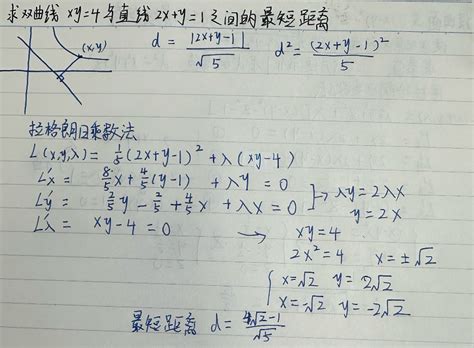 求双曲线 xy=4 与直线 2x+y=1 之间的最短距离
(x,y)
d = |2x+y-1| / √5    d² = (2x+y-1)² / 5
拉格朗日乘数法
L(x,y,λ) = 1/5 (2x+y-1)² + λ(xy-4)
L'x = 8/5 x + 4/5 (y-1) + λy = 0
L'y = 2/5 y - 2/5 + 4/5 x + λx = 0
} → λy = 2λx
y = 2x
L'λ = xy-4 = 0
→ xy=4
2x² = 4    x = ±√2
{ x=√2  y=2√2
x=-√2  y=-2√2
最短距离 d = (4√2-1) / √5